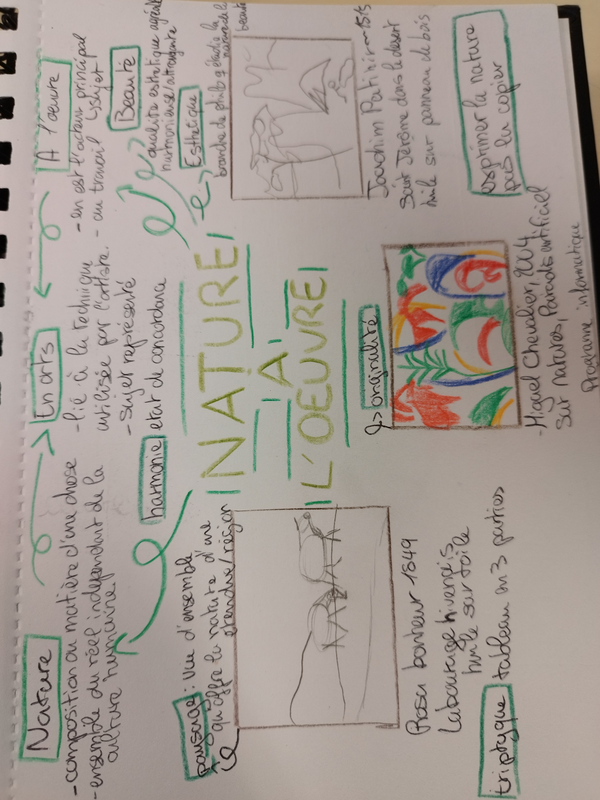 Nature
- composition ou matière d'une chose
- ensemble du réel indépendant de la
culture humaine
En arts
- lié à la technique
utilisée par l'artiste.
- sujet représenté
A l'oeuvre
- en est l'acteur principal
- au travail
↳ sujet
Beauté
qualité esthétique
harmonieuse/attrayante
Esthétique
branche de philo q étudie la
nature de la
beauté
harmonie etat de concordance
NATURE
À
L'OEUVRE
paysage : vue d'ensemble
qu'offre la nature d'une
étendue/région
Rosa bonheur 1849
Labourage nivernais
huile sur toile
triptyque tableau en 3 parties
↳ originalité
- Miguel Chevalier, 2004,
Sur natures, Paradis artificiel
Programme informatique
Joachim Patinir ~ 1515
Saint Jérôme dans le désert
huile sur panneau de bois
exprimer la nature
pas la copier